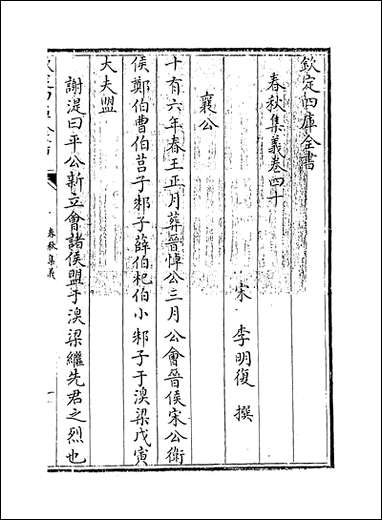 欽定四庫全書
春秋集義卷四十
宋 李明復 撰
襄公
十有六年春王正月葬晉悼公三月公會晉侯宋公衛
侯鄭伯曹伯莒子邾子薛伯杞伯小邾子于溴梁戊寅
大夫盟
謝湜曰平公新立會諸侯盟于溴梁繼先君之烈也
春秋集義
一